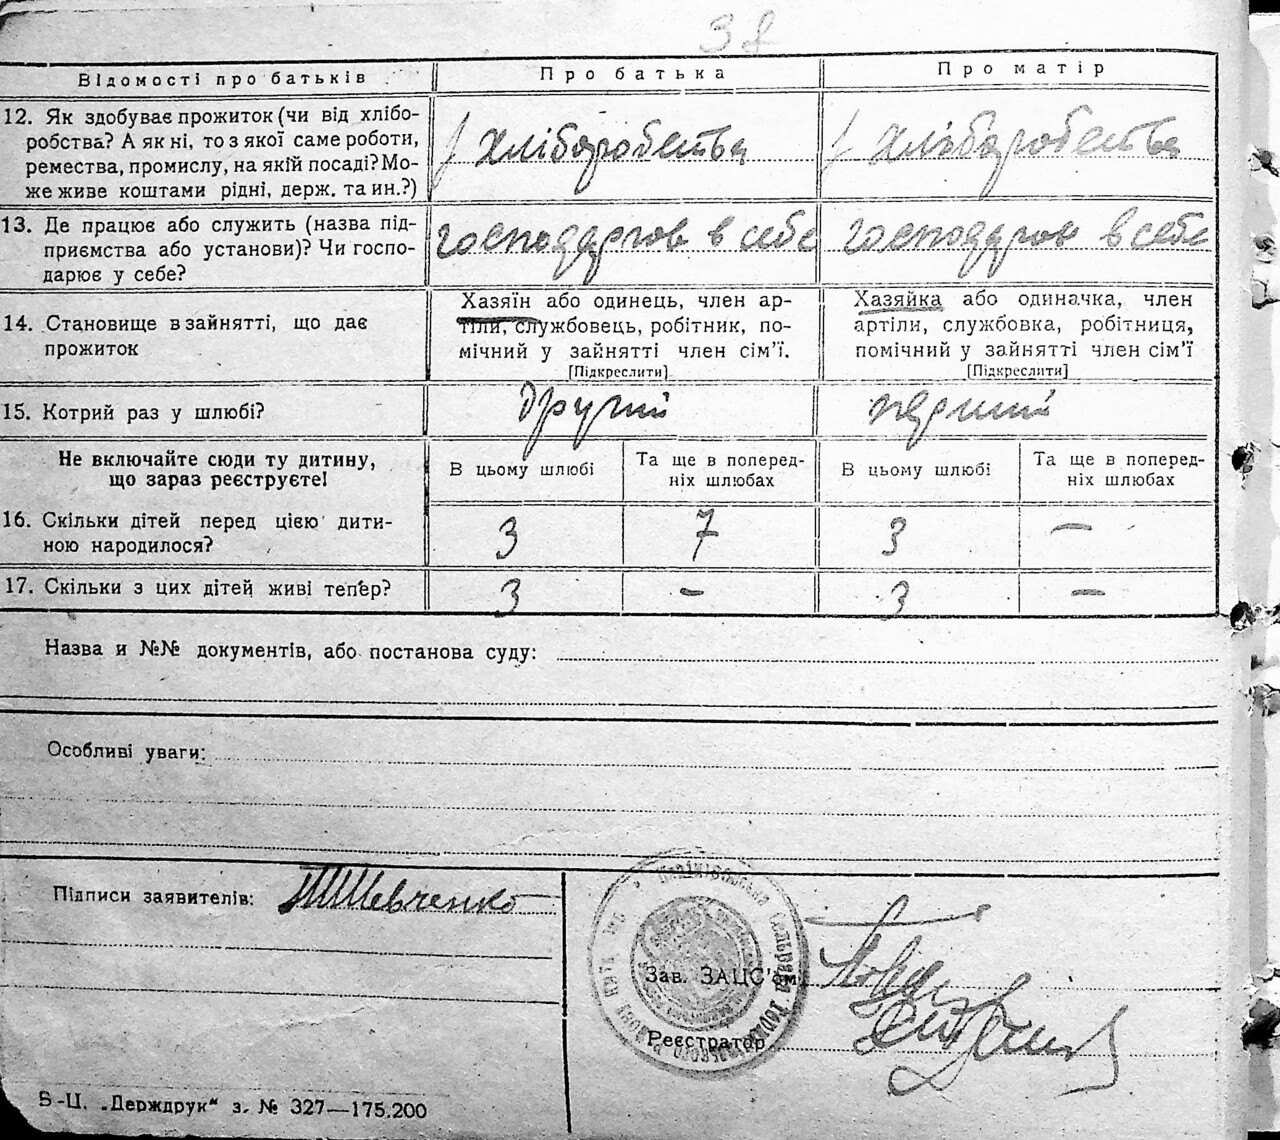 38
Відомості про батьків
Про батька
Про матір
12. Як здобуває прожиток (чи від хлібо-
робства? А як ні, то з якої саме роботи,
ремества, промислу, на якій посаді? Мо-
же живе коштами рідні, держ. та ин.?)
хліборобства
хліборобства
13. Де працює або служить (назва під-
приємства або установи)? Чи госпо-
дарює у себе?
господарюв в себе
господарюв в себе
14. Становище в зайнятті, що дає
прожиток
Хазяїн або одинець, член ар-
тіли, службовець, робітник, по-
мічний у зайнятті член сім'ї.
[Підкреслити]
Хазяйка або одиначка, член
артіли, службовка, робітниця,
помічний у зайнятті член сім'ї
[Підкреслити]
15. Котрий раз у шлюбі?
другий
перший
Не включайте сюди ту дитину,
що зараз реєструєте!
В цьому шлюбі
Та ще в поперед-
ніх шлюбах
В цьому шлюбі
Та ще в поперед-
ніх шлюбах
16. Скільки дітей перед цією дити-
ною народилося?
3
7
3
—
17. Скільки з цих дітей живі тепер?
3
—
3
—
Назва и №№ документів, або постанова суду:
Особливі уваги:
Підписи заявителів: Шевченко
Зав. ЗАЦС'ом
Реєстратор
Б-Ц. „Держдрук" з. № 327—175.200